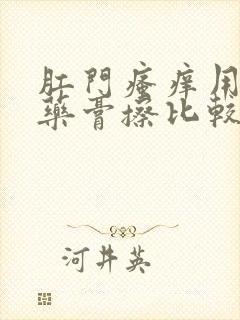 肛門瘙癢用
藥膏擦比較
河井英